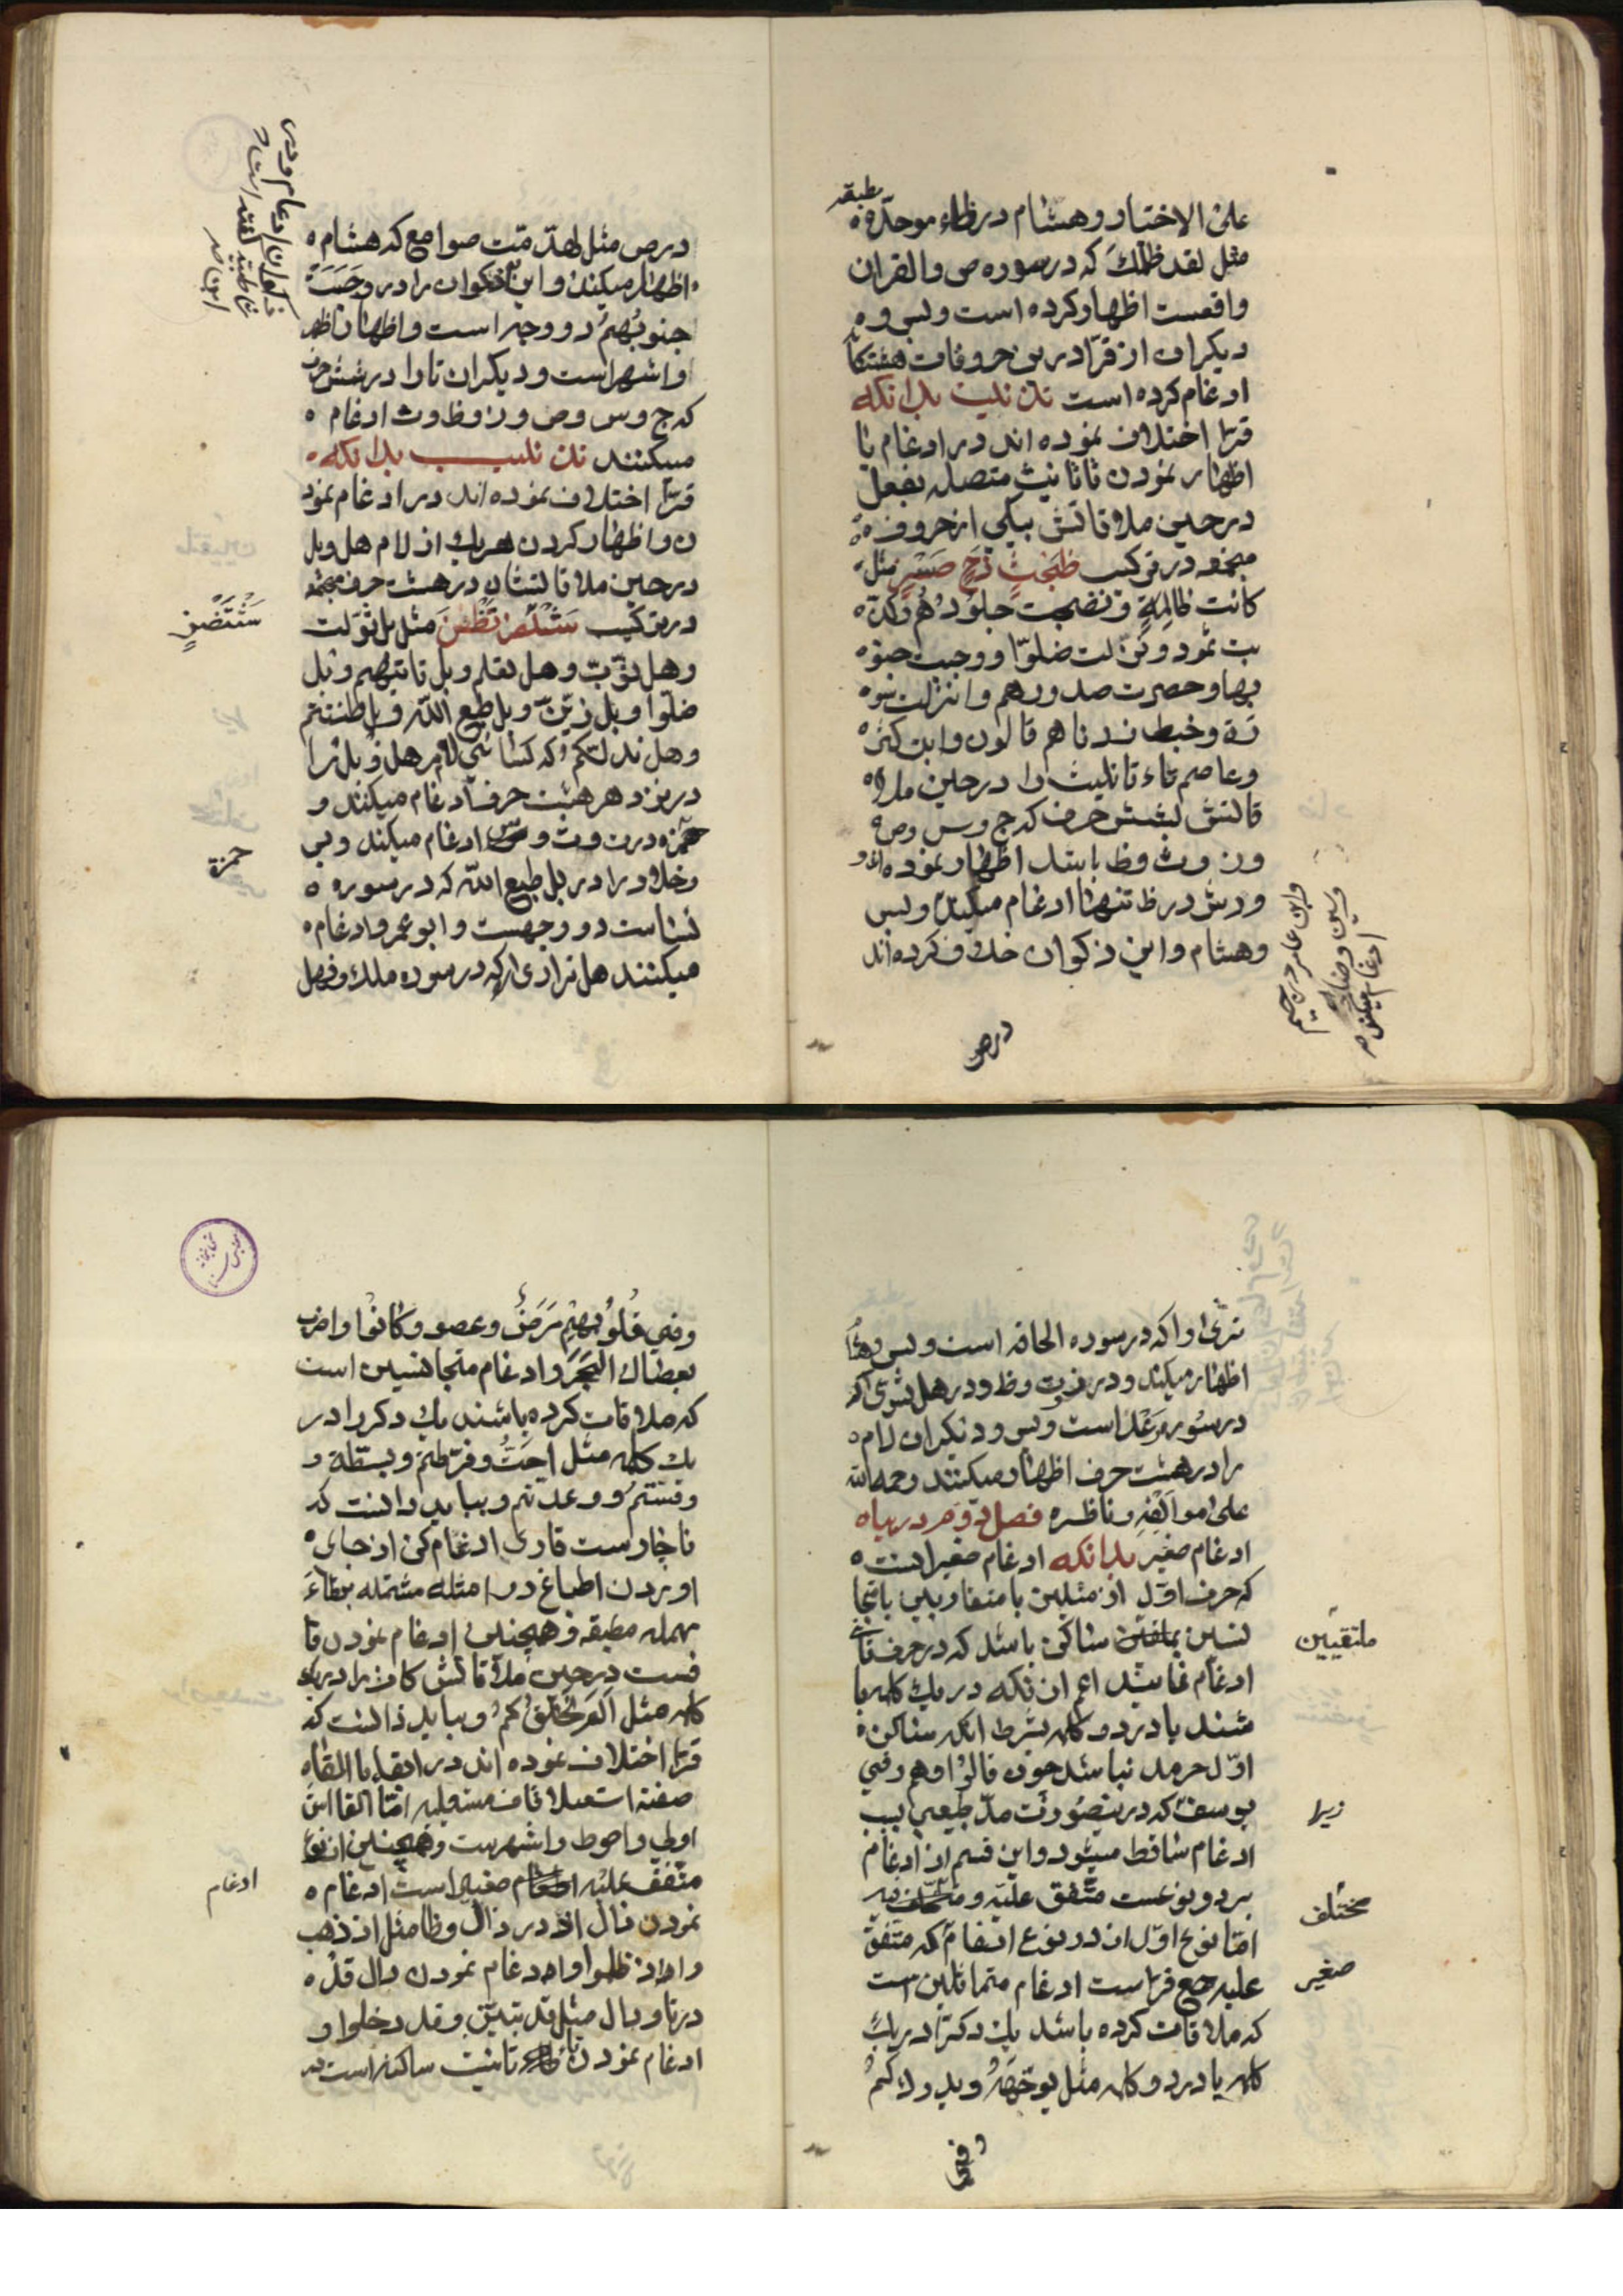 على الاختيار وهشام در ظاء موحدّه
مطبقه
مثل لقد ظلمك كه در سوره ص والقران
واقعست اظهار كرده است وبس و
ديكران از قرّا درين حروفات هشتكا
ادغام كرده است تذنيب بدانكه
قرّا اختلاف نموده اند در ادغام يا
اظهار نمودن تا تانيث متصله بفعل
در حين ملاقاتش بيكي از حروف
مجتمعه در تركيب ظَجَثٍ زَجٍّ صَسٍ مثل
كانت ظالِمة ونضجت جلودُهُم وكذّ
بت ثمود و لت ضلوّا ووجبت جنو
بها وحصرت صدورهم وانزلت سو
رة وخبط زدناهم قالون وابن كثير
وعاصم تاء تانيث را در حين ملا
قاتش بشش حرف كه ج وس وص
وز وث وظ باشد اظهار نموده اند و
ورش در ظ تنها ادغام ميكند وبس
وهشام وابن ذكوان خلاف كرده اند
وابن عامر در جيم
وسين وضا
ادغام ميكند
درص
در ص مثل لهدّمت صوامع كه هشام
اظهار ميكند وابن ذكوان را در وجَبَتْ
جنوبُهم دو وجه است واظهار اظهر
واشهر است وديكران تا را در شش حرف
كه ج وس وص وز وظ وث ادغام
ميكنند تذنيب بدانكه
قرّا اختلاف نموده اند در ادغام نمود
ن واظهار كردن هر يك از لام هل وبل
در حين ملاقاتشان در هشت حرف مجتمعه
در تركيب مثل بل سوّلت
سَنْتَضَزٍ
وهل ثوّب وهل نعلم وبل تاتيهم وبل
ضلّوا وبل زيّن وبل طبع الله وبل ظننتم
وهل ندلّكم كه كسائي لام هل وبل را
در نزد هر هشت حرف ادغام ميكند و
حمزه در ت وث وس ادغام ميكند وبس
حمزة
وخلاد را در بل طبع الله كه در سوره
نساست دو وجهست وابو عمرو ادغام
ميكنند هل ترا را كه در سوره ملك وفهل
ترىٰ را كه در سوره الحاقه است وبس وهشام
اظهار ميكند و در ن وض وظ ودر هل تستوى كه
در سوره رَعْد است وبس وديكران لام
را در هشت حرف اظهار ميكنند رحمه الله
على مؤلفِهِ وناظره فصل دوّم در بيان
ادغام صغير بدانكه ادغام صغير انست
كه حرف اوّل از مثلين يا متقاربين يا متجا
نسين ساكن باشد كه در حرف ثاني
ملتقيين
ادغام نمايند اعم از انكه در يك كلمه با
شند يا در دو كلمه بشرط انكه ساكن
اوّل حرف مد نباشد چون قالوُا وهم وفي
يوسف كه درينصورت مدّ طبيعي بسبب
زيرا
ادغام ساقط ميشود واين قسم از ادغام
بر دو نوعست متّفق عليه ومختلف فيه
مختلف
امّا نوع اوّل از دو نوع ادغام كه متّفق
صغير
عليه جميع قرّاست ادغام متماثلين است
كه ملاقات كرده باشد يك ديكر را در يك
كلمه يا در دو كلمه مثل يوجّههُ ويدرككم
وفي
وفي قُلُوبِهِمْ مَرَضٌ وعصو وكانوُا واضرب
بعصاك الحَجَر وادغام متجانسين است
كه ملاقات كرده باشند يك ديكر را در
يك كلمه مثل احَطتُ وفرّطتم وبسطتَ و
وعدتم وببايد دانست كه
ناچارست قارى ادغام كن از جاى
اوردن اطباغ در امثله مشتمله بطاءِ
مهمله مطبقه وهمچنين ادغام نمودن قا
فست در حين ملاقاتش كاف را در يك
كلمه مثل الَم نَخْلُقْكُم وببايد دانست كه
قرّا اختلاف نموده اند در ابقاء يا القاء
صفت استعلا قاف مستعليه امّا القا اين
اولى واحوط واشهرست وهمچنين از نوع
متّفق عليه ادغام صغير است ادغام
ادغام
نمودن ذال اذ در ذال وظا مثل اذ ذهب
واذ ظلموا وادغام نمودن دال قد
در تا ودال مثل قد تبيّن وقد دخلوا و
ادغام نمودن تاء تانيث ساكنه است در